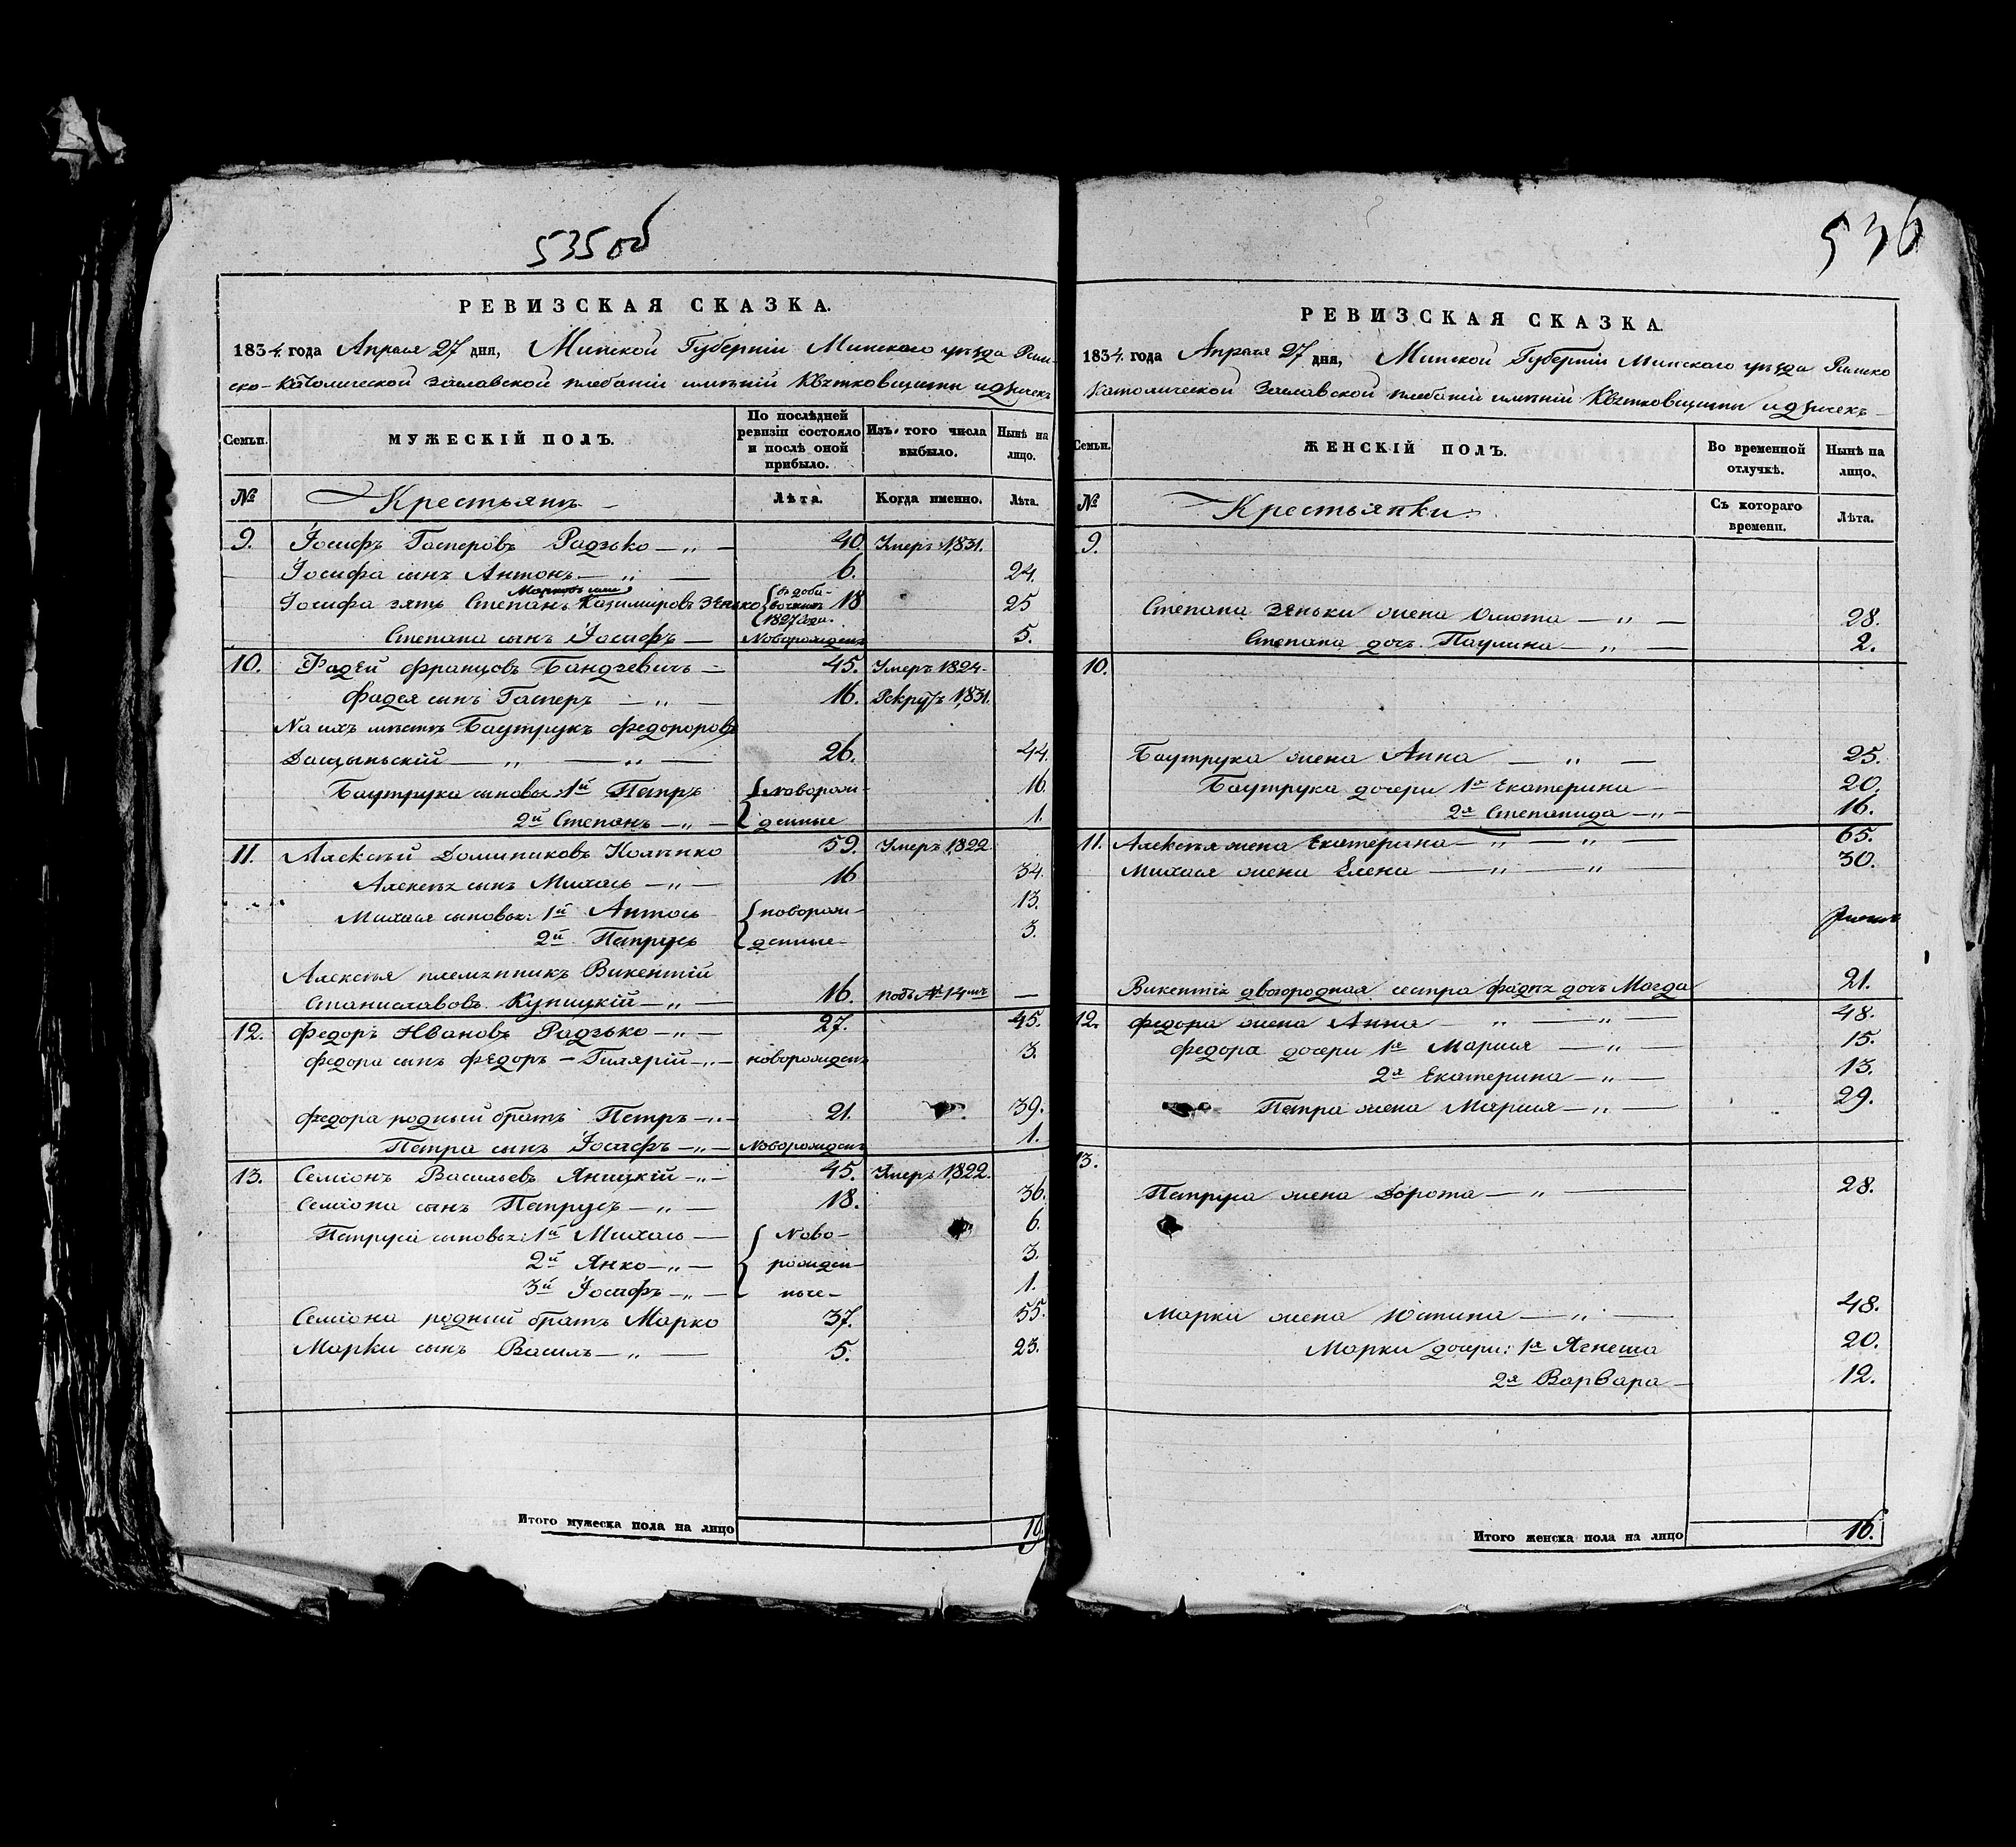 535об
РЕВИЗСКАЯ СКАЗКА.
1834. года Апреля 27 дня, Минской Губерніи Минскаго уѣзда Рим-
ско-католической Заславской плебаніи имѣній Квѣтковщизны
Семьи.
МУЖЕСКІЙ ПОЛЪ.
По послѣдней ревизіи состояло и послѣ оной прибыло.
Изъ того числа выбыло.
Нынѣ на лицо.
№ Крестьянъ Лѣта. Когда именно. Лѣта.
9. Іосифъ Гасперовъ Радзько — „ — 40. Умеръ 1831.
Іосифа сынъ Антонъ — „ — 6. 24.
Марковъ сынъ
Іосифа зять Степанъ Казимировъ Зѣнько 18 25
1827 года.
Степана сынъ Іосифъ — Новорожденъ 5.
10. Фадѣй Францовъ Бандзевичь — 45. Умеръ 1824.
Фадея сынъ Гасперъ — „ — 16. Рекрутъ 1831.
На ихъ мѣсто Баутрукъ Федороровъ
Дащыньскій — „ — „ — 26. 44.
Баутрука сыновья: 1й Петръ { Новорож- 16.
2й Степанъ — „ — { денные 1.
11. Алексѣй Доминиковъ 59. Умеръ 1822
Алексѣя сынъ Михась — „ — 16 34.
Михася сыновья: 1й Антось { новорож- 13.
2й Петрусь { денные 3.
Алексѣя племянникъ Викентій
Станиславовъ Купицкій — „ — 16. подъ № 14мъ —
12. Федоръ Ивановъ Радзько — „ — 27. 45.
Федора сынъ Федоръ — Гилярій — „ — новорожденъ 3.
Федора родный братъ Петръ — „ — 21. 39.
Петра сынъ Іосифъ — „ — Новорожденъ 1.
13. Семіонъ Васильевъ Яницкій — „ — 45. Умеръ 1822.
Семіона сынъ Петрусь — „ — 18. 36.
Петруся сыновья: 1й Михась — { Ново- 6.
2й Янко — „ — { рожден- 3.
3й Іосифъ — „ — { ные — 1.
Семіона родный братъ Марко 37. 55.
Марки сынъ Василь — „ — 5. 23.
Итого мужеска пола на лицо
536
РЕВИЗСКАЯ СКАЗКА.
1834. года Апреля 27 дня, Минской Губерніи Минскаго уѣзда Римско
Католической Заславской плебаніи имѣній Квѣтковщизны
Семьи.
ЖЕНСКІЙ ПОЛЪ.
Во временной отлучкѣ.
Нынѣ на лицо.
№ Крестьянки. Съ котораго времени. Лѣта.
9.
Степана Зѣньки жена — „ — 28.
Степана дочь Паулина — „ — 2.
10.
Баутрука жена Анна — „ — 25.
Баутрука дочери 1я Екатерина — 20.
2я Степанида — „ — 16.
11. Алексѣя жена Екатерина — „ — „ — 65.
Михася жена Елена — „ — „ 30.
Викентія двоюродная сестра Фадѣя дочь Магда 21.
12. Федора жена Анна — „ — „ — 48.
Федора дочери 1я Марыя — „ — 15.
2я Екатерина — „ — 13.
Петра жена Марыя — „ — 29.
13.
Петруся жена Дорота — „ — 28.
Марки жена Юстина — „ — 48.
Марки дочери: 1я Ягнеша 20.
2я Варвара — 12.
Итого женска пола на лицо 16.